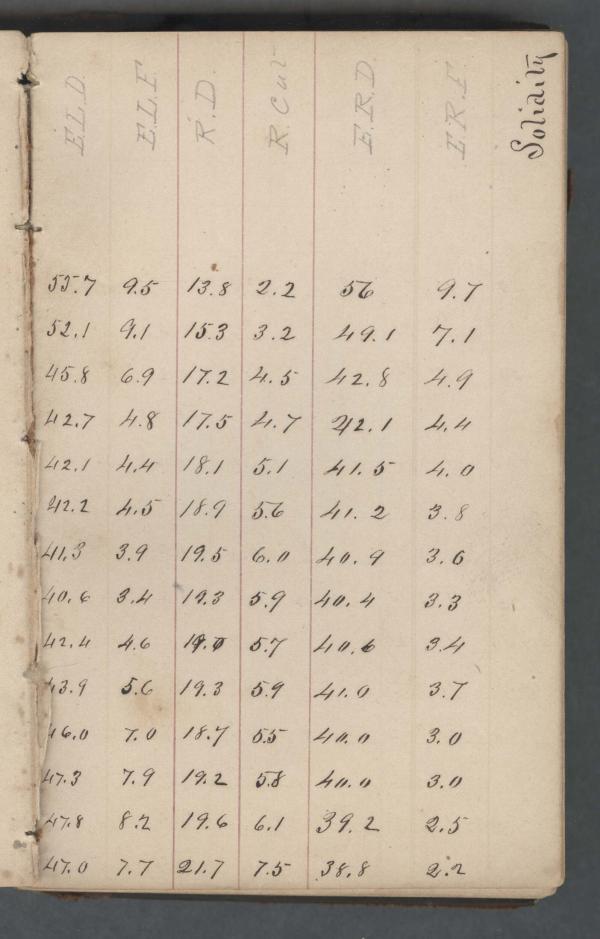 E.L.D. E.L.F. R.D. R. Cut E.R.D. E.R.F Solidity
55.7 9.5 13.8 2.2 56 9.7
52.1 9.1 15.3 3.2 49.1 7.1
45.8 6.9 17.2 4.5 42.8 4.9
42.7 4.8 17.5 4.7 42.1 4.4
42.1 4.4 18.1 5.1 41.5 4.0
42.2 4.5 18.9 5.6 41.2 3.8
41.3 3.9 19.5 6.0 40.9 3.6
40.6 3.4 19.3 5.9 40.4 3.3
42.4 4.6 19.0 5.7 40.6 3.4
43.9 5.6 19.3 5.9 41.0 3.7
46.0 7.0 18.7 5.5 40.0 3.0
47.3 7.9 19.2 5.8 40.0 3.0
47.8 8.2 19.6 6.1 39.2 2.5
47.0 7.7 21.7 7.5 38.8 2.2